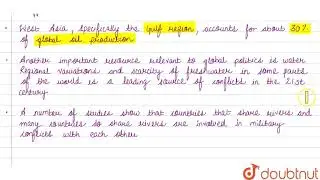 West Asia, specifically the Gulf region, accounts for about 30%
of global oil production
Another important resource relevant to global politics is water
Regional variations and scarcity of freshwater in some parts
of the world is a leading source of conflicts in the 21st
century
A number of studies show that countries that share rivers and
many countries so share rivers are involved in military
conflicts with each other
doubtnut